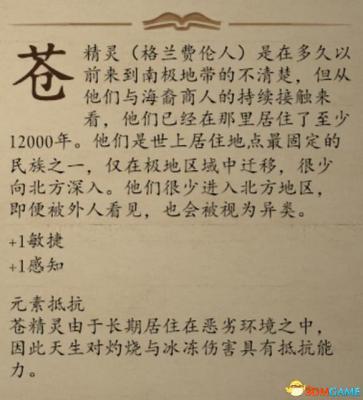 苍精灵（格兰费伦人）是在多久以
前来到南极地带的不清楚，但从
他们与海裔商人的持续接触来
看，他们已经在那里居住了至少
12000年。他们是世上居住地点最固定的
民族之一，仅在极地区域中迁移，很少
向北方深入。他们很少进入北方地区，
即便被外人看见，也会被视为异类。
+1敏捷
+1感知
元素抵抗
苍精灵由于长期居住在恶劣环境之中，
因此天生对灼烧与冰冻伤害具有抵抗能
力。
3DMGAME